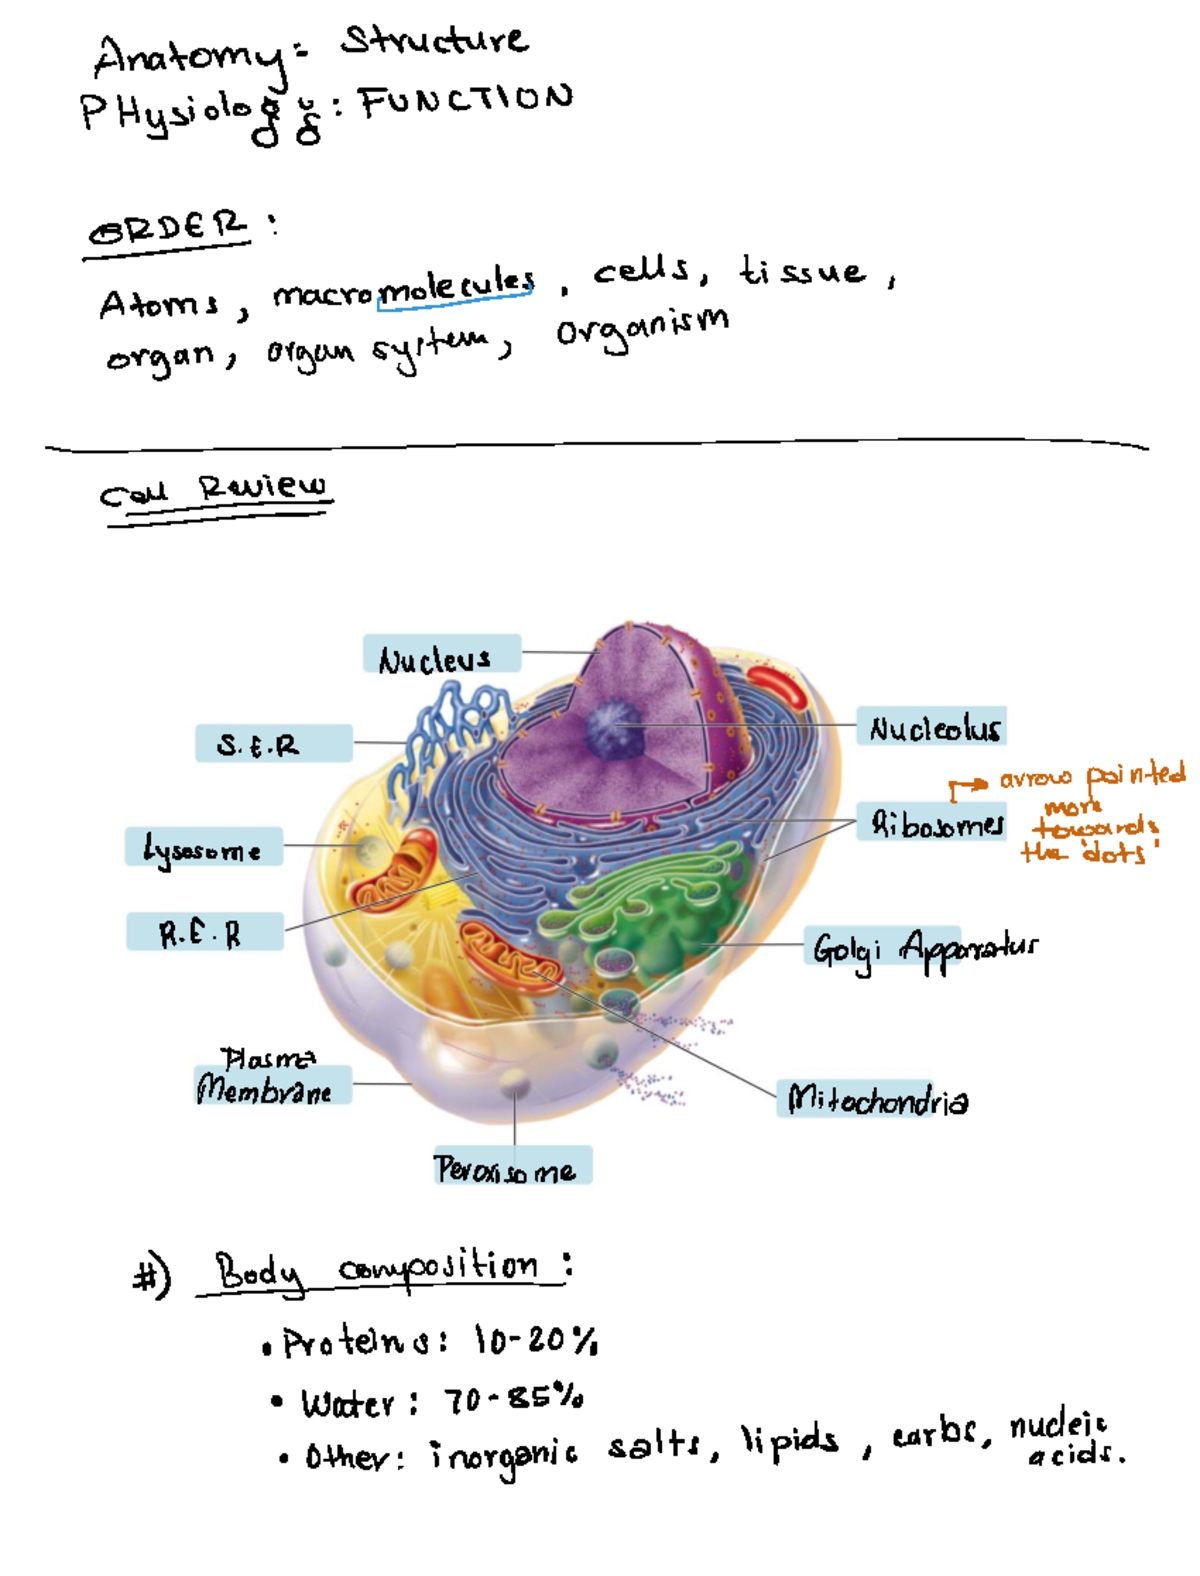 Anatomy: Structure
PHysiology: FUNCTION
ORDER:
Atoms, macromolecules, cells, tissue,
organ, organ system, organism
Cell Review
Nucleus
S.E.R
Nucleolus
arrow pointed
more
towards
the 'dots'
Ribosomes
Lysosome
R.E.R
Golgi Apparatus
Plasma
Membrane
Mitochondria
Peroxisome
#) Body composition:
• Proteins: 10-20%
• Water: 70-85%
• Other: inorganic salts, lipids, carbs, nucleic
acids.